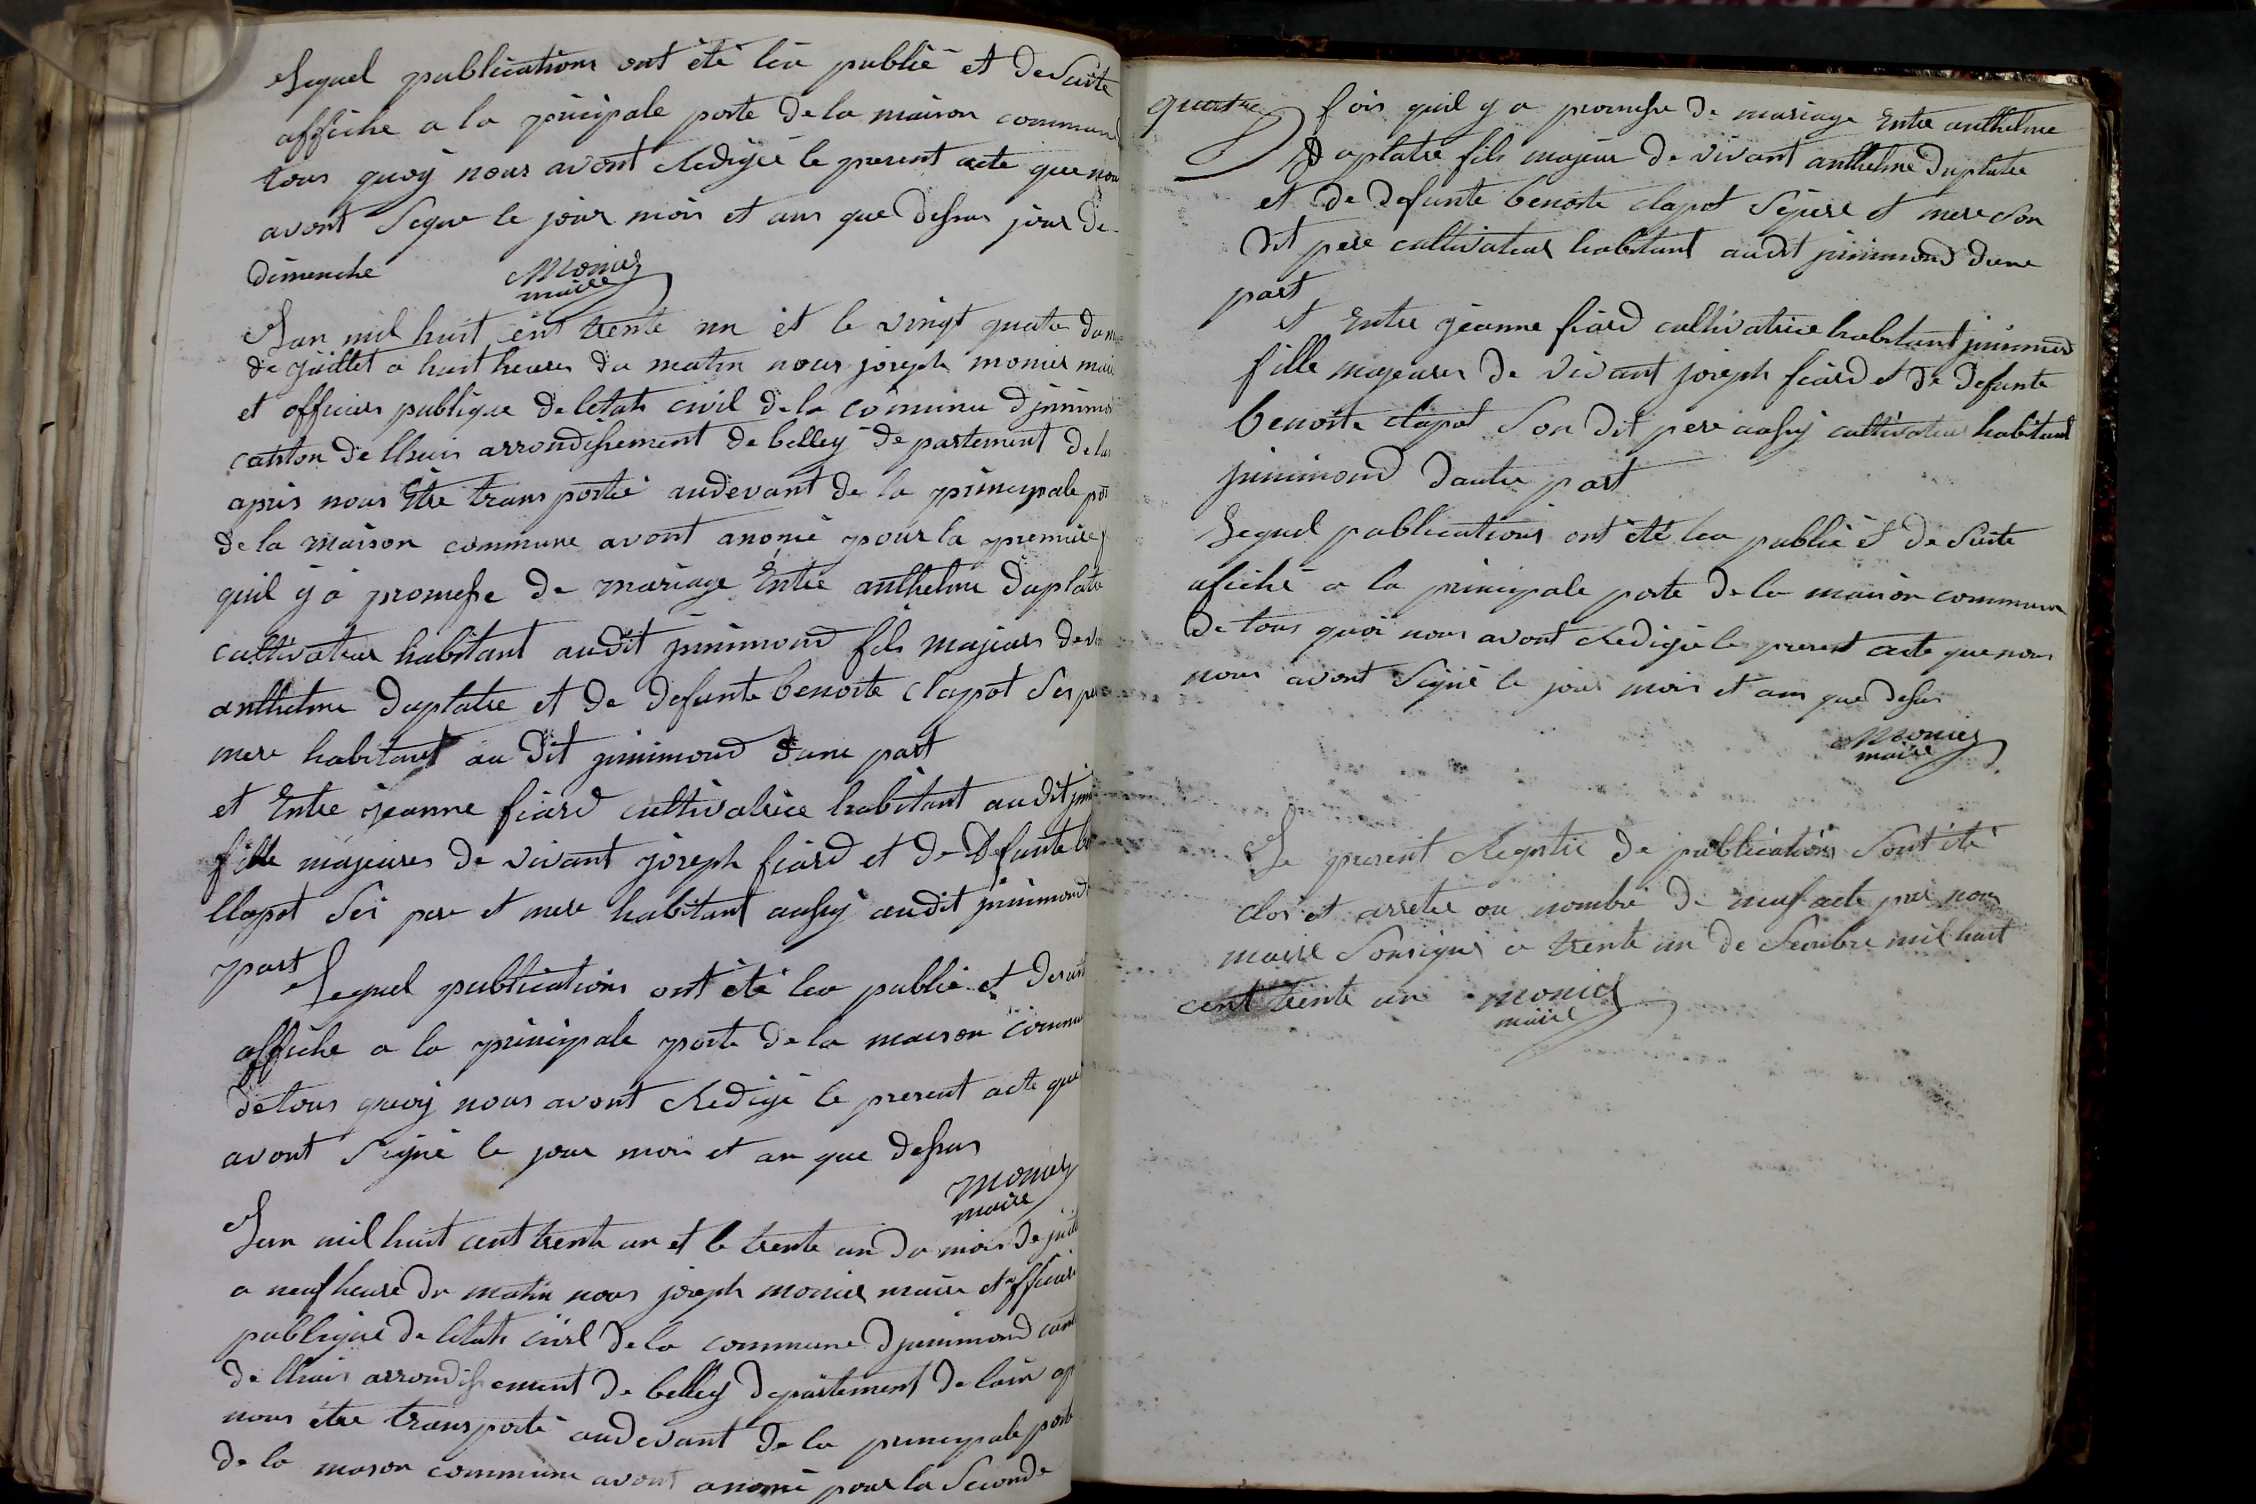 Lequel publications ont été leu publié et de suite
affiche a la principale porte de la maison commun
tous quoÿ nous avont Redigée le present acte que nou
avont Signe le jour mois et ans que dessus jour de
dimenche Monier
maire
Lan mil huit cent trente un et le vingt quatre du m
de juillet a huit heures du matin nous joseph monier mair
et officier publique de letats civil de la commune djnnimo
canton de lhuis arrondissement de belley departement de la
apres nous Être transportée audevant de la principale por
de la maison commune avont anonce pour la premiere
quil y a promesse de mariage Entre anthelme duplatre
cultivateur habitant audit jnnimond fils majeur de v
anthelme duplatre et de defunte benoite clapot Ses per
mere habitant au dit jnnimond dune part
et Entre jeanne fiard cultivatrice habitant audit jnni
fille majeures de vivant joseph fiard et de defunte be
Clapot Ses pere et mere habitant aussy audit jnnimond
part
Lequel publications ont été leu publié et de suit
affiche a la principale porte de la maison commu
de tous quoy nous avont Redigé le present acte que
avont Signé le jour mois et an que dessus
monier
maire
Lan mil huit cent trente un et le trente un du mois de juill
a neuf heure du matin nous joseph monier maire et officier
publique de letats civil de la commune djnnimond cant
de lhuis arrondissement de belley departement de lain ap
nous être transporté audevant de la principale porte
de la mason commune avont anonce pour la Seconde
quatre
fois quil y a promesse de mariage Entre anthelme
duplatre fils majeur de vivant anthelme duplatre
et de defunte benoite clapot Ses pere et mere Son
dit pere cultivateur habitant audit jnnimond dune
part
et Entre jeanne fiard cultivatrice habitant jnnimond
fille majeures de vivant joseph fiard et de defunte
benoite clapot Son dit pere aussy cultivateur habitant
jnnimond dautre part
Lequel publications ont été leu publié et de suite
afiché a la principale porte de la maison commune
de tous quoi nous avont Redigée le present acte que nous
nous avont Signé le jour mois et an que dessus
Monier
maire
Le present Registre de publications Sont été
clos et arretée au nombre de neuf acte par nous
maire Sousigné a trente un decembre mil huit
cent trente un monier
maire